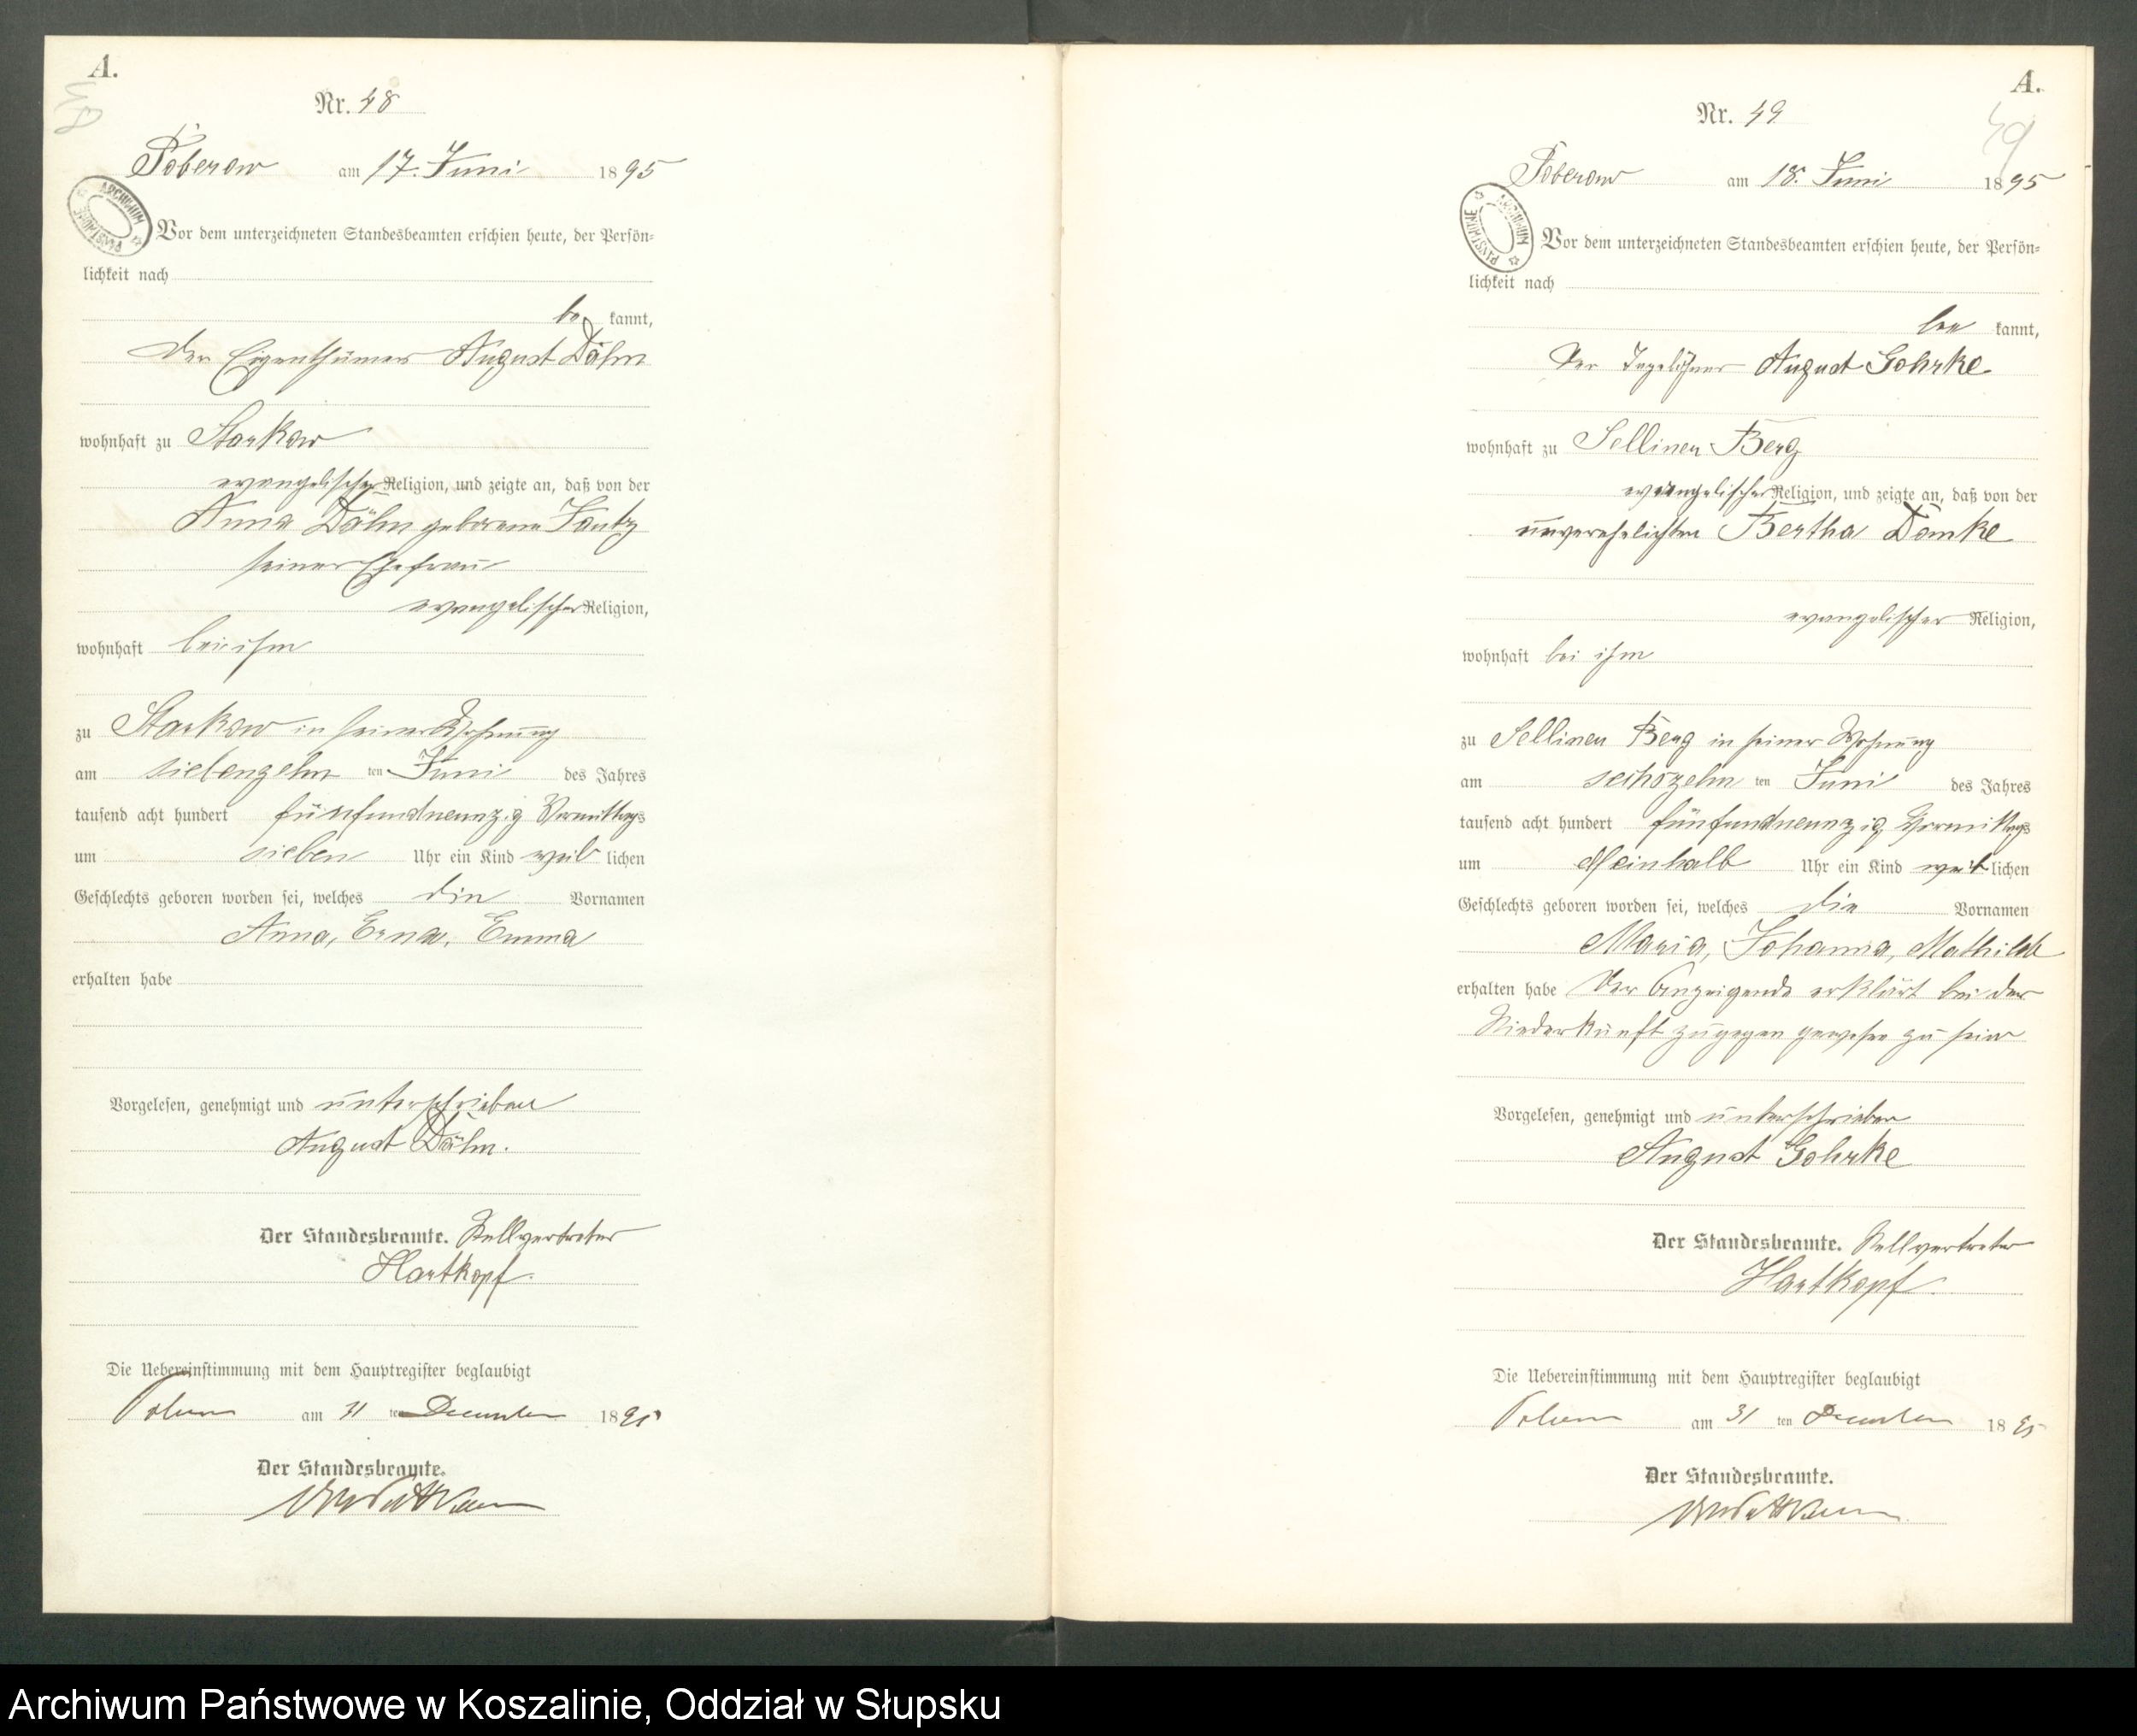 A.
48
Nr. 48
Poberow am 17. Juni 1895
ARCHIWUM PAŃSTWOWE
Vor dem unterzeichneten Standesbeamten erschien heute, der Persön-
lichkeit nach
be kannt,
der Eigenthümer August Dähn
wohnhaft zu Starkow
evangelischer Religion, und zeigte an, daß von der
Anna Dähn geborene Jantz
seiner Ehefrau
evangelischer Religion,
wohnhaft bei ihm
zu Starkow in seiner Wohnung
am siebenzehn ten Juni des Jahres
tausend acht hundert fünfundneunzig Vormittags
um sieben Uhr ein Kind weib lichen
Geschlechts geboren worden sei, welches die Vornamen
Anna, Erna, Emma
erhalten habe
Vorgelesen, genehmigt und unterschrieben
August Dähn.
Der Standesbeamte. Stellvertreter
Hartkopf.
Die Uebereinstimmung mit dem Hauptregister beglaubigt
am 31 ten December 1895
Der Standesbeamte.
A.
49
Nr. 49
Poberow am 18. Juni 1895
ARCHIWUM PAŃSTWOWE
Vor dem unterzeichneten Standesbeamten erschien heute, der Persön-
lichkeit nach
be kannt,
der Tagelöhner August Gohrke
wohnhaft zuSelliner Berg
evangelischer Religion, und zeigte an, daß von der
unverehelichten Bertha Domke
evangelischer Religion,
wohnhaft bei ihm
zu Selliner Berg in seiner Wohnung
am sechszehn ten Juni des Jahres
tausend acht hundert fünfundneunzig Vormittags
um elfeinhalb Uhr ein Kind weib lichen
Geschlechts geboren worden sei, welches die Vornamen
Maria, Johanna, Mathilde
erhalten habe Der Anzeigende erklärt bei der
Niederkunft zugegen gewesen zu sein
Vorgelesen, genehmigt und unterschrieben
August Gohrke
Der Standesbeamte. Stellvertreter
Hartkopf.
Die Uebereinstimmung mit dem Hauptregister beglaubigt
am 31 ten December 1895
Der Standesbeamte.
Archiwum Państwowe w Koszalinie, Oddział w Słupsku